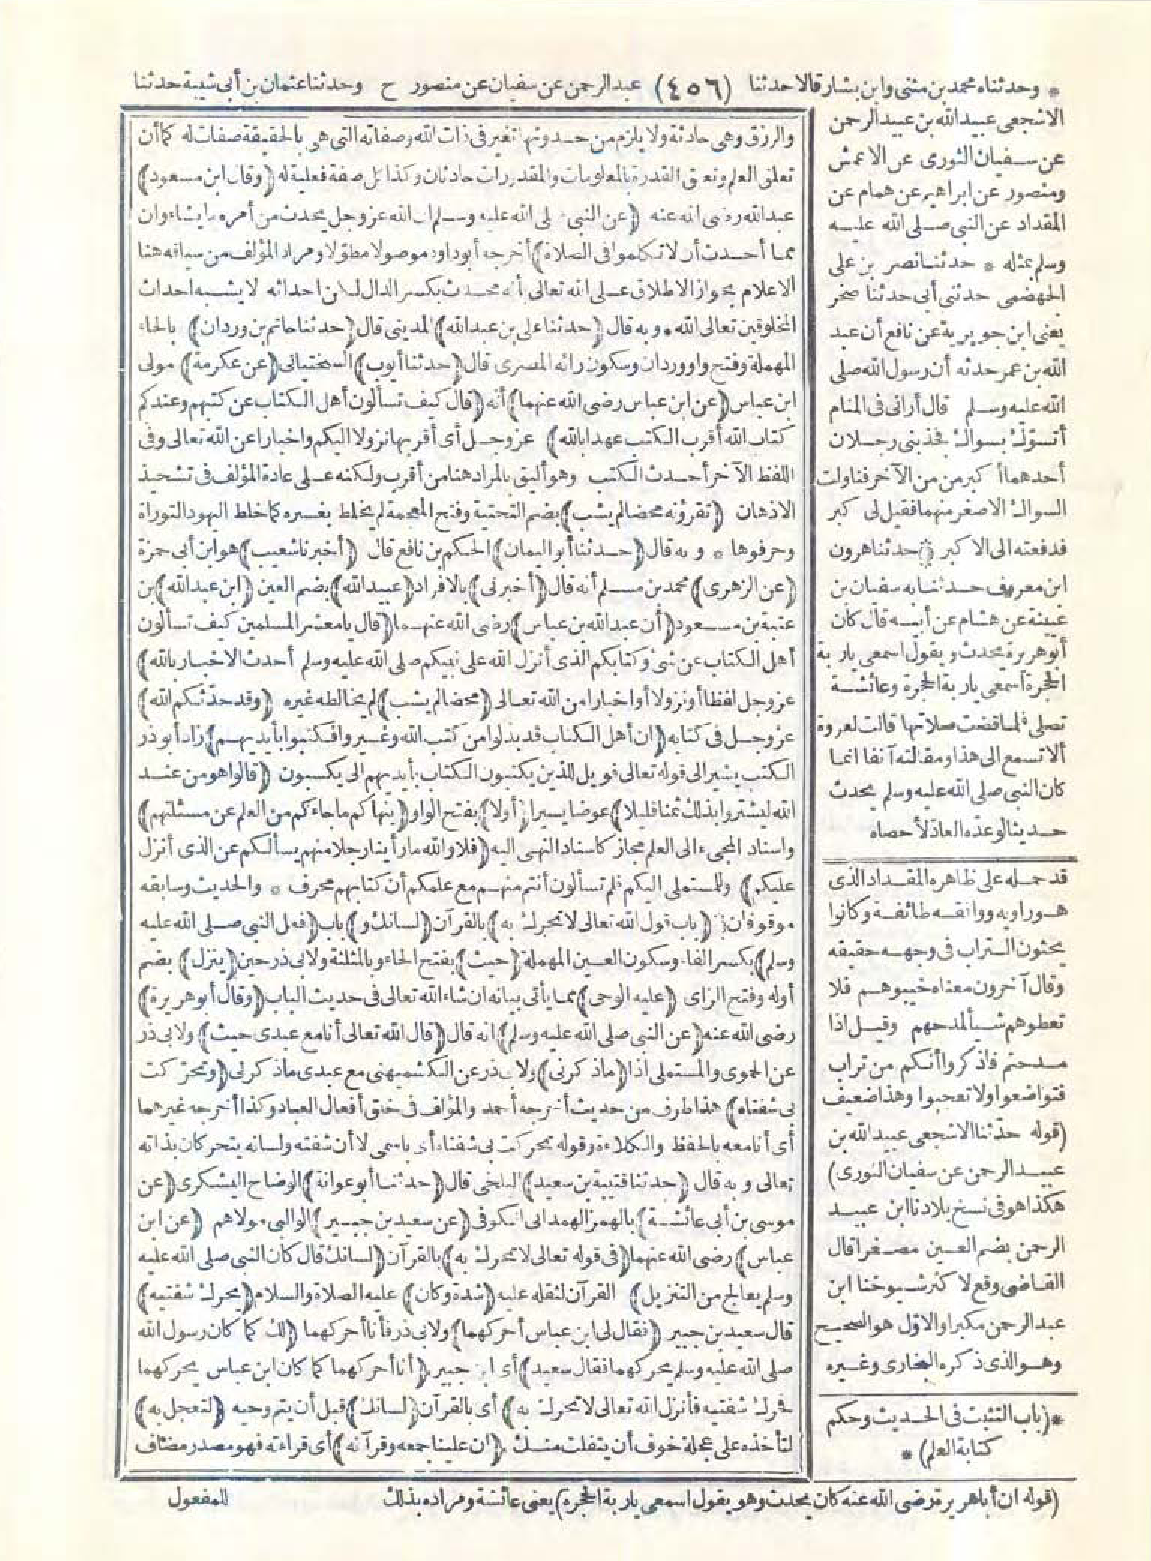 * وحدثناه محمد بن مثنى وابن بشار قالا حدثنا (٤٥٦) عبد الرحمن عن سفيان عن منصور ح وحدثنا عثمان بن أبى شيبة حدثنا
الاشجعى عبيد الله بن عبيد الرحمن
عن سفيان الثورى عن الاعمش
ومنصور عن ابراهيم عن همام عن
المقداد عن النبى صلى الله عليه
وسلم بمثله * حدثنا نصر بن على
الجهضمى حدثنى أبى حدثنا صخر
يعنى ابن جويرية عن نافع أن عبد
الله بن عمر حدثه أن رسول الله صلى
الله عليه وسلم قال أرانى فى المنام
أتسوّك بسواك فجذبنى رجلان
أحدهما أكبر من من الآخر فناولت
السواك الاصغر منهما فقيل لى كبر
فدفعته الى الاكبر حدثنا هرون
ابن معروف حدثنا به سفيان بن
عيينة عن هشام عن أبيه قال كان
أبو هريرة يحدث ويقول اسمعى يا ربة
الحجرة اسمعى يا ربة الحجرة وعائشة
تصلى فلما قضت صلاتها قالت لعروة
ألا تسمع الى هذا ومقالته آنفا انما
كان النبى صلى الله عليه وسلم يحدث
حديثا لو عدّه العادّ لأحصاه
قد حمله على ظاهره المقداد الذى
هو راويه ووافقه طائفة وكانوا
يحثون التراب فى وجهه حقيقة
وقال آخرون معناه خيبوهم فلا
تعطوهم شيأ لمدحهم وقيل اذا
مدحتم فاذكروا أنكم من تراب
فتواضعوا ولا تعجبوا وهذا ضعيف
(قوله حدثنا الاشجعى عبيد الله بن
عبيد الرحمن عن سفيان الثورى)
هكذا هو فى نسخ بلادنا ابن عبيد
الرحمن بضم العين مصغرا قال
القاضى وقع لاكثر شيوخنا ابن
عبد الرحمن مكبرا والاول هو الصحيح
وهو الذى ذكره البخارى وغيره
*(باب التثبت فى الحديث وحكم
كتابة العلم) *
والرزق وهى حادثة ولا يلزم من حدوثها تغير فى ذات الله وصفاته التى هى بالحقيقة صفات له كما أن
تعلق العلم وتعلق القدرة بالمعلومات والمقدورات حادثان وكذا كل صفة فعلية له (وقال ابن مسعود)
عبد الله رضى الله عنه (عن النبى صلى الله عليه وسلم ان الله عز وجل يحدث من أمره ما يشاء وان
مما أحدث أن لا تكلموا فى الصلاة) أخرجه أبو داود موصولا مطولا ومراد المؤلف من سياقه هنا
الاعلام بجواز الاطلاق على الله تعالى أنه محدث بكسر الدال لكن احداثه لا يشبه احداث
المخلوقين تعالى الله * وبه قال (حدثنا على بن عبد الله) المدينى قال (حدثنا حاتم بن وردان) بالحاء
المهملة وفتح واو وردان وسكون رائه المصرى قال (حدثنا أيوب) السختيانى (عن عكرمة) مولى
ابن عباس (عن ابن عباس رضى الله عنهما) أنه (قال كيف تسألون أهل الكتاب عن كتبهم وعندكم
كتاب الله أقرب الكتب عهدا بالله) عز وجل أى أقربها نزولا اليكم واخبارا عن الله تعالى وفى
اللفظ الآخر أحدث الكتب وهو أليق بالمراد هنا من أقرب ولكنه على عادة المؤلف فى تشحيذ
الاذهان (تقرؤنه محضا لم يشب) بضم التحتية وفتح المعجمة لم يخلط بغيره كما خلط اليهود التوراة
وحرفوها * وبه قال (حدثنا أبو اليمان) الحكم بن نافع قال (أخبرنا شعيب) هو ابن أبى حمزة
(عن الزهرى) محمد بن مسلم أنه قال (أخبرنى) بالافراد (عبيد الله) بضم العين (ابن عبد الله) بن
عتبة بن مسعود (أن عبد الله بن عباس) رضى الله عنهما (قال يا معشر المسلمين كيف تسألون
أهل الكتاب عن شئ وكتابكم الذى أنزل الله على نبيكم صلى الله عليه وسلم أحدث الاخبار بالله)
عز وجل لفظا أو نزولا أو اخبارا من الله تعالى (محضا لم يشب) لم يخالطه غيره (وقد حدثكم الله)
عز وجل فى كتابه (ان أهل الكتاب قد بدلوا من كتب الله وغيروا فكتبوا بأيديهم) زاد أبو ذر
الكتب يشير الى قوله تعالى فويل للذين يكتبون الكتاب بأيديهم الى يكسبون (قالوا هو من عند
الله ليشتروا بذلك ثمنا قليلا) عوضا يسيرا (أولا) بفتح الواو (ينهاكم ما جاءكم من العلم عن مسئلتهم)
واسناد المجىء الى العلم مجاز كاسناد النهى اليه (فلا والله ما رأينا رجلا منهم يسألكم عن الذى أنزل
عليكم) وللمستملى اليكم فلم تسألون أنتم منهم مع علمكم أن كتابهم محرف * والحديث وسابقه
موقوفان (باب قول الله تعالى لا تحرك به) بالقرآن (لسانك و) باب (فعل النبى صلى الله عليه
وسلم) بكسر الفاء وسكون العين المهملة (حيث) بفتح الحاء وبالمثلثة ولابى ذر حين (ينزل) بضم
أوله وفتح الزاى (عليه الوحى) مما يأتى بيانه ان شاء الله تعالى فى حديث الباب (وقال أبو هريرة)
رضى الله عنه (عن النبى صلى الله عليه وسلم) انه قال (قال الله تعالى أنا مع عبدى حيث) ولابى ذر
عن الحموى والمستملى اذا (ما ذكرنى) ولابى ذر عن الكشميهنى مع عبدى ما ذكرنى (وتحركت
بى شفتاه) هذا طرف من حديث أخرجه أحمد والمؤلف فى خلق أفعال العباد وكذا أخرجه غيرهما
أى أنا معه بالحفظ والكلاءة وقوله تحركت بى شفتاه أى باسمى لا أن شفته ولسانه يتحركان بذاته
تعالى وبه قال (حدثنا قتيبة بن سعيد) البلخى قال (حدثنا أبو عوانة) الوضاح اليشكرى (عن
موسى بن أبى عائشة) بالهمز الهمدانى الكوفى (عن سعيد بن جبير) الوالبى مولاهم (عن ابن
عباس) رضى الله عنهما (فى قوله تعالى لا تحرك به) بالقرآن (لسانك قال كان النبى صلى الله عليه
وسلم يعالج من التنزيل) القرآن لثقله عليه (شدة وكان) عليه الصلاة والسلام (يحرك شفتيه)
قال سعيد بن جبير (فقال لى ابن عباس أحركهما) ولابى ذر فأنا أحركهما (لك كما كان رسول الله
صلى الله عليه وسلم يحركهما فقال سعيد) أى ابن جبير (أنا أحركهما كما كان ابن عباس يحركهما
فحرك شفتيه فأنزل الله تعالى لا تحرك به) أى بالقرآن (لسانك) قبل أن يتم وحيه (لتعجل به)
لتأخذه على عجلة خوف أن يتفلت منك (ان علينا جمعه وقرآنه) أى قراءته فهو مصدر مضاف
(قوله ان أبا هريرة رضى الله عنه كان يحدث وهو يقول اسمعى يا ربة الحجرة) يعنى عائشة ومراده بذلك للمفعول